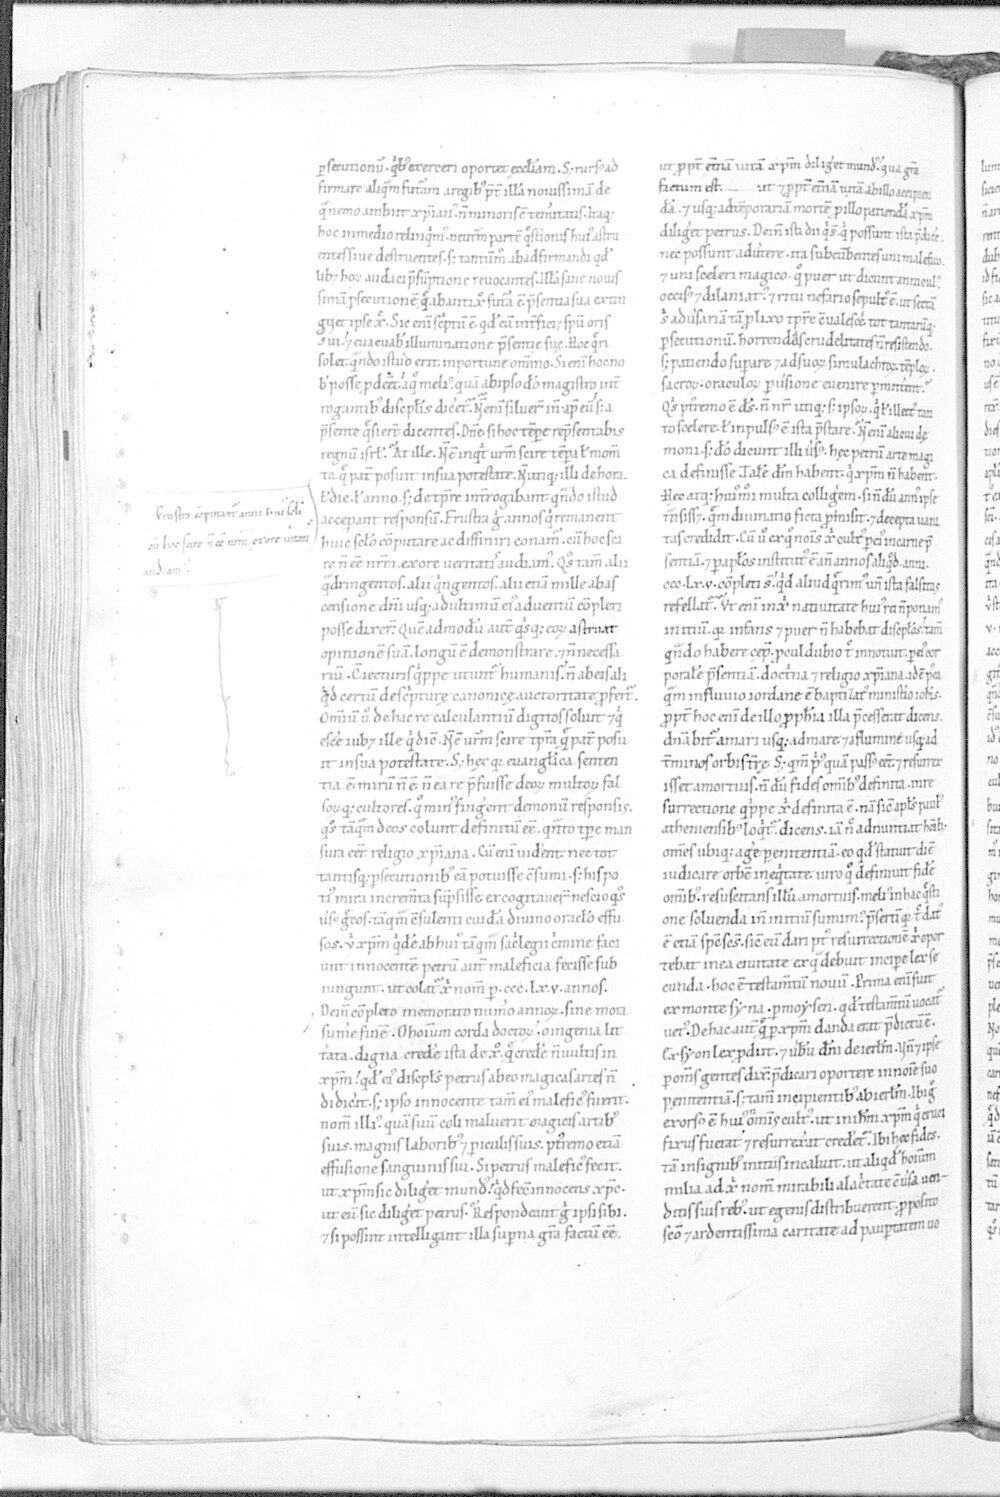 psecutionū. qͥbꝰ exerceri oportet eccl̄iam. S; rursꝰ ad
firmare aliqͣm futurā a regibꝰ p̄t illā nouissimā de
qͣ nemo ambiit xpianꝰ. n̄ minoris ē temeritatis. Itaq;
hoc in medio relinqͥmꝰ. neutrm̄ partē qͣstionis huiꝰ astru
entes siue destruentes. s; tantūm̄ ab adfirmandi qd̓
libꝫ hoꝝ audaci p̄sūptione reuocantes. Illā sane nouis
simā psecutionē qͣ ab antixp̄o futura ē p̄sentia sua extin
guet ipse xp̄c. Sic eni sc̄ptū ē qd̓ eū int̓ficiꝫ sp̄u oris
sui. ⁊ euacuab̓ illuminatione p̄sentie sue. Hoc qͥri
solet. qͣndo istud erit inportune omīno. Si eni hoc no
bꝰ posse pdeēt. a qͦ meliꝰ quā ab ipso dō magistro int̓
rogantibꝰ discipl̄is diceret. N̄ enī siluer̄ in ap̓ eū s; a
p̄sente qͣsier̄t dicentes. Dn̄e si hoc tēpe rep̄sentabis
regnū isrl̓. At ille. N̄ ē inqͥt urm̄ scire tēpa ł mom̄
ta qͣ pat̓ posuit in sua potestate. N̄ utiq; illi de hora.
ł die. ł anno. s; de tp̄re int̓rogabant qͣndo istud
acceperant responsū. Frustra g̊ annos qͥ remanent
huic sclo cōputare ac diffinire conam̓. cū hoc sci
re n̄ ēe nrm̄. ex ore ueritatis audiam̓. Qͦs tam̄ alii
qͣdringentos. alii qͥngentos. alii etiā mille ab as
censione dn̄i usq; ad ultimū eiꝰ aduentū cōpleri
posse dixer̄. Quē admodū aut̄ qͥsq; eoꝝ astruat
opinionē suā. longū ē demonstrare. ⁊ n̄ necessa
riū. Ciecturis qͥppe utunt̓ humanis. n̄ ab eis ali
qͥd certū de sc̄pture canonice auctoritate pfert̓.
Omiū u̓ de hac re calculantiū digitos soluit ⁊ qͥ
esce̓ iubꝫ ille qͥ dic̄. N̄ ē urm̄ scire tp̄ra qͣ pat̓ posu
it in sua potestate. S; hec qꝛ euangl̓ica senten
tia ē mirū n̄ ē. n̄ ea rep̄ssos fuisse deoꝝ multoꝝ fal
soꝝq; cultores. qͦ minꝰ fingent demonū responsis.
qͦs tāqͣm deos colunt definitū ēe. qͣnto tp̄e man
sura eēt religio xpiana. Cū eni uident nec tot
tantisq; psecutionibꝰ eā potuisse ēsumi. s; his po
tiꝰ mira increm̄ta sūpsisse. excogitauer̄ nescio qͦs
ūsꝰ g̊cos. tāqͣm ēsulenti cuidā diuino oraclo effu
sos. ubi xpm̄ qͥdē ab huiꝰ tāqͣm sacͥlegii cͥmine faci
unt innocentē petrū aut̄ maleficia fecisse sub
iungunt. ut colat̓ xp̄i nom̄ p. ccc. lx. v. annos.
Dein̄ cōpleto memorato num̓o annoꝝ. sine mora
sum̓e finē. O hoium corda doctoꝝ. o ingenia lit
t̓ata. digna crede̓ ista de xp̄o. qͦ crede̓ n̄ uultis in
xpm̄. qd̓ eiꝰ discipl̄s petrus ab eo magicas artes n̄
didicit. s; ipso innocente tam̄ eiꝰ maleficꝰ fuerit.
nom̄ illiꝰ. quā suū coli maluerit magicis artibꝰ
suis. magnis laboribꝰ ⁊ piculis suis. p̄tremo etiā
effusione sanguinis sui. Si petrus maleficꝰ fecit.
ut xpm̄ sic diliget mundꝰ. qͥd fec̄ innocens xp̄c.
ut eū sic diliget petrus. Respondeant g̊ ipsi sibi.
⁊ si possint intelligant illa supna gr̄a factū ēe.
Frustra cōputant̓ anni huiꝰ scl̓i
cū hoc scire n̄ ēe nrm̄. ex ore ueritatis
audiam̓.
ut pp̄t et̓nā uitā xpm̄ diliget mundꝰ. qua gr̄a
factum est. ut ⁊ pp̄t et̓nā uitā ab illo accipien
dā. ⁊ usq; ad tēporariā mortē p illo patiendā xpm̄
diliget petrus. Dein̄ ista dii qͥ s̄. qͥ possunt ista p̄dice̓.
nec possunt adu̓te̓re. ita subcūbentes uni malefico.
⁊ uni sceleri magico. qͦ puer ut dicunt anniculꝰ
occisꝰ ⁊ dilaniatꝰ. ⁊ ritu nefario sepultꝰ ē. ut sectā
s̄ adūsariā tā plixo tp̄re ēualesce̓ tot tantarūq;
psecutionū. horrendas crudelitates n̄ resistendo.
s; patiendo supare ⁊ ad suoꝝ simulachroꝝ tēploꝝ.
sacroꝝ. oraculoꝝ puersione euenire pmitterent.
Qͥs p̄tremo ē ds̄. n̄ nr̄ utiq; s; ipsoꝝ. qͥ ł illectꝰ tan
to scelere. ł inpulsꝰ ē ista p̄stare. N̄ enī alicui de
moni. s; dō dicunt illi ūsꝰ. hec petrū arte magi
ca definisse. Talē dm̄ habent. qͥ xpm̄ n̄ habent.
Hec atq; huiꝰm̄i multa colligerem. si n̄dū annꝰ ipse
t̓nsissꝫ. qͣm diuinatio ficta pmisit. ⁊ decepta uani
tas credidit. Cū u̓ ex qͦ nom̄is xp̄i cultꝰ p eiꝰ in carne p̄
sentiā. ⁊ p aplos institutꝰ ē an̄ annos aliqͦd. anni.
ccc. lx. v. cōpleti s̄. qͥd aliud qͣrimꝰ un̄ ista falsitas
refellat̓. Ut eni in xp̄i natiuitate huiꝰ rei n̄ ponamꝰ
initiū. qꝛ infans ⁊ puer n̄ habebat discipl̄os. tam̄
qͣndo habere cep̄. pcul dubio t̄ innotuit. p eiꝰ cor
poralē p̄sentiā. doctͥna ⁊ religio xpiana. id ē p̄ea
qͣm in fluuio iordane ē baptizatꝰ ministerio iohis.
pp̄t hoc enī de illo pphia illa p̄cesserat dicens.
dn̄abit̓ a mari usq; ad mare ⁊ a flumine usq; ad
t̓minos orbis tr̄re. S; qͣm pͥꝰ quā passꝰ eēt. ⁊ resurrex
isset a mortuis. n̄dū fides omibꝰ definita. in re
surrectione qͥppe xp̄i definita ē. nā sic apl̄s paulꝰ
atheniensibꝰ loqͥt̓. dicens. iā nc̄ adnuntiat hoibꝰ
omēs ubiq; age̓ penitentiā. eo qd̓ statuit diē
iudicare orbē in eqͥtate. in uiro qͦ definiuit fidē
omibꝰ. resuscitans illū a mortuis. meliꝰ in hac qͥsti
one soluenda in̄ initiū sumimꝰ. p̄serti qꝛ t̄ datꝰ
ē etiā sp̄c scs̄. sic̄ eū dari pꝰ resurrectionē xp̄i opor
tebat in ea ciuitate ex qͣ debuit incipe lex se
cunda. hoc ē testam̄tū nouū. Prima enī fuit
ex monte syna. p moysen. qd̓ testam̄tū uocat̓
uetꝰ. De hac aut̄ qͣ p xpm̄ danda erat p̄dictū ē.
Ex syon lex pdiit. ⁊ ubū dn̄i de ierlm̄. Un̄ ⁊ ipse
p om̄s gentes dix̄. p̄dicari oportere in noie suo
penitentiā. s; tam̄ incipientibꝰ ab ierlm̄. Ibi g̊
exorsꝰ ē huiꝰ nōis cultꝰ. ut in ihm̄ xpm̄ qͥ cruci
fixus fuerat ⁊ resurrexerat crederet̓. Ibi hec fides.
tā insignibꝰ initiis incaluit. ut aliqͦd hoium
milia ad xp̄i nom̄ mirabili alacͥtate ēūsa uen
ditis suis rebꝰ. ut egenis distribuerent. pposito
sc̄o ⁊ ardentissima caritate ad paupertatem uo